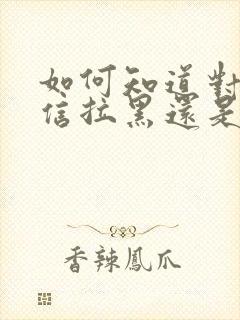 如何知道對
信拉黑還是
香辣鳳爪